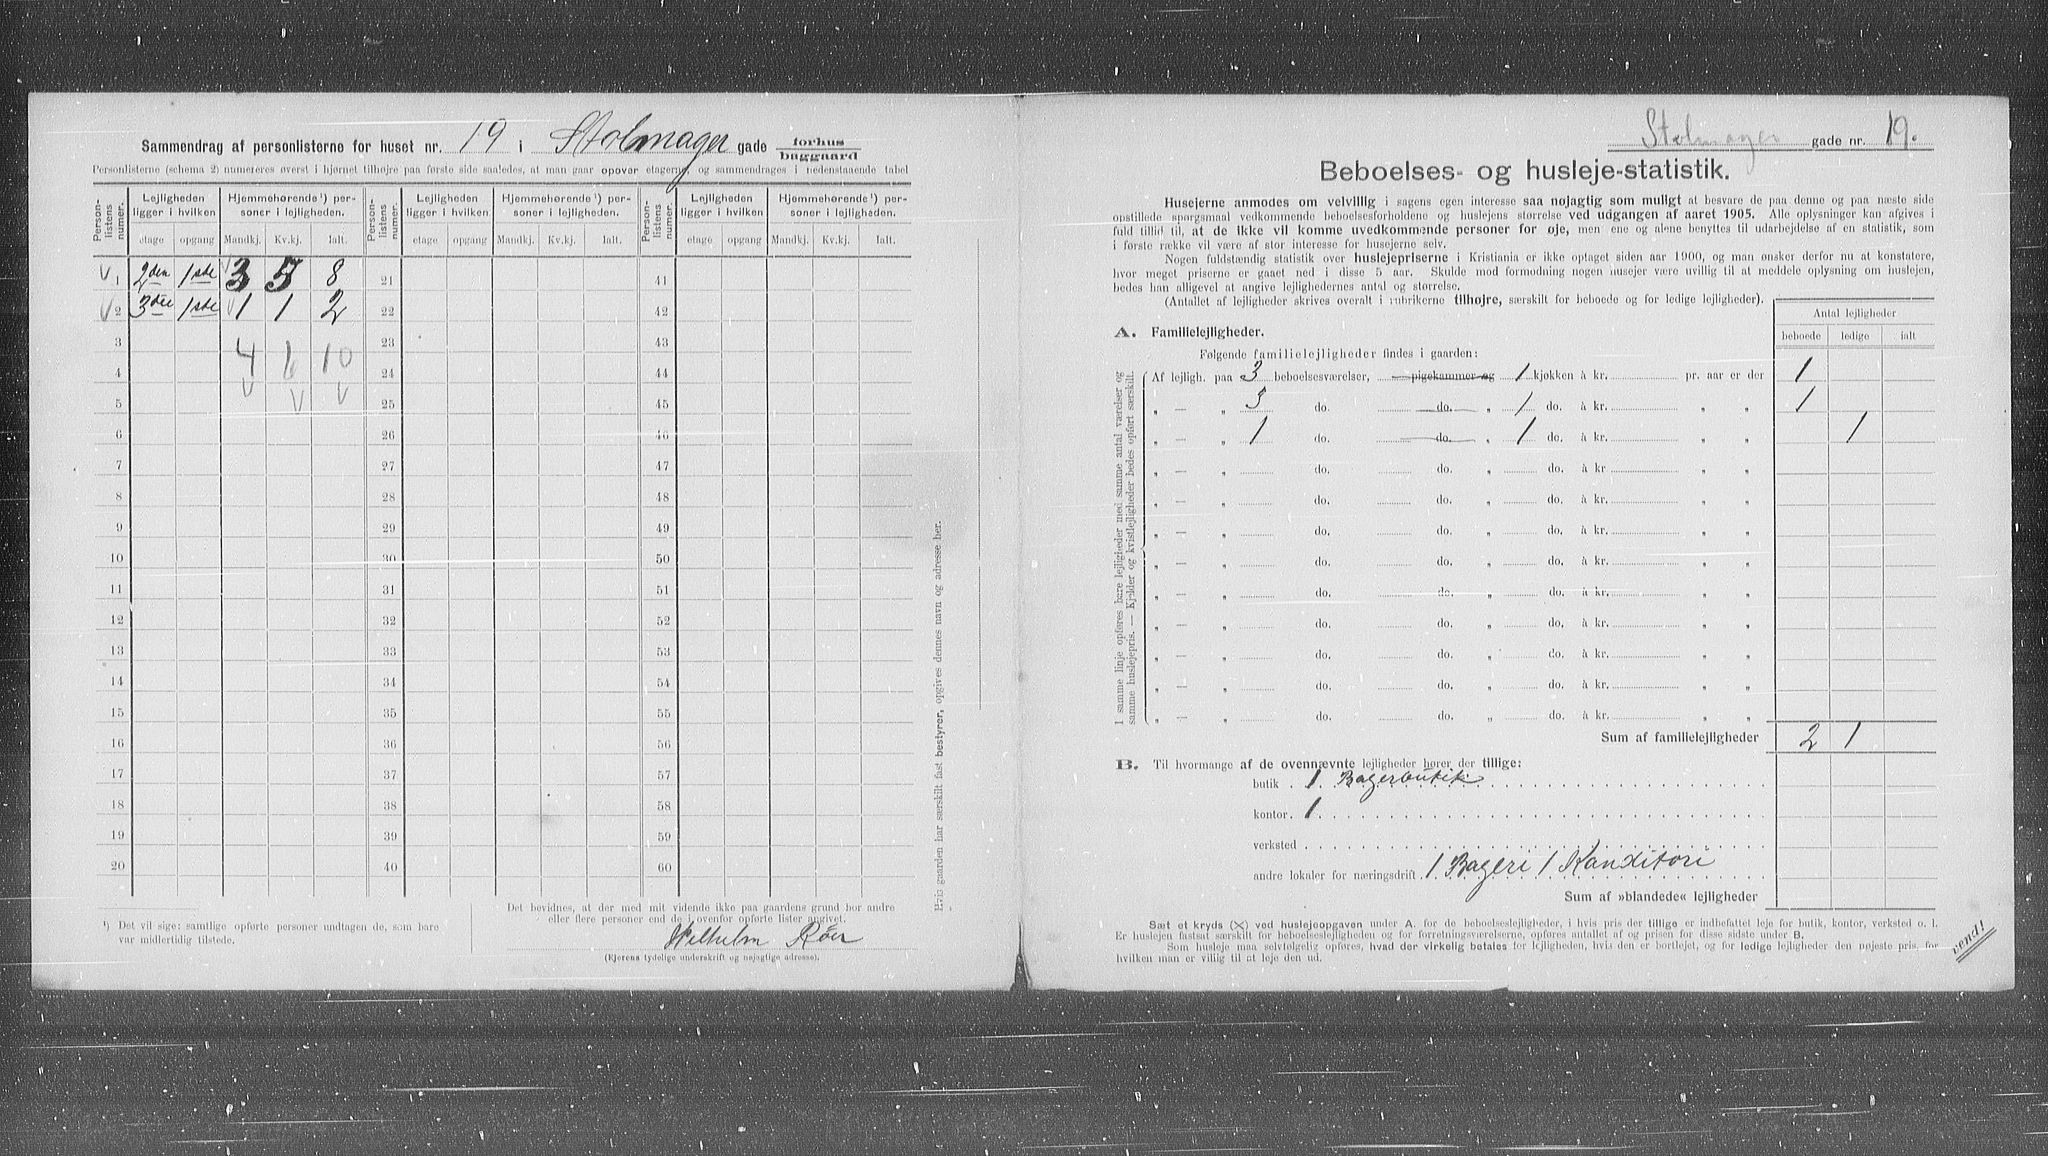 Sammendrag af personlisterne for huset nr. 19 i Stolmager gade forhus
baggaard
Personlisterne (schema 2) numereres øverst i hjørnet tilhøjre paa første side saaledes, at man gaar opover etagerne, og sammendrages i nedenstaaende tabel
Person-listens numer. Lejligheden ligger i hvilken Hjemmehørende¹) personer i lejligheden. Person-listens numer. Lejligheden ligger i hvilken Hjemmehørende¹) personer i lejligheden. Person-listens numer. Lejligheden ligger i hvilken Hjemmehørende¹) personer i lejligheden.
etage opgang Mandkj. Kv.kj. Ialt. etage opgang Mandkj. Kv.kj. Ialt. etage opgang Mandkj. Kv.kj. Ialt.
V 1 2den 1ste V 3 5 8 21 41
V 2 3die 1ste V 1 1 2 22 42
3 4 6 10 23 43
4 V V V 24 44
5 25 45
6 26 46
7 27 47
8 28 48
9 29 49
10 30 50
11 31 51
12 32 52
13 33 53
14 34 54
15 35 55
16 36 56
17 37 57
18 38 58
19 39 59
20 40 60
Hvis gaarden har særskilt fast bestyrer, opgives dennes navn og adresse her.
¹) Det vil sige: samtlige opførte personer undtagen de, som bare
var midlertidig tilstede.
Det bevidnes, at der med mit vidende ikke paa gaardens grund bor andre
eller flere personer end de i ovenfor opførte lister angivet.
Wilhelm Röer
(Ejerens tydelige underskrift og nøjagtige adresse).
Stolmager gade nr. 19.
Beboelses- og husleje-statistik.
Husejerne anmodes om velvillig i sagens egen interesse saa nøjagtig som muligt at besvare de paa denne og paa næste side
opstillede spørgsmaal vedkommende beboelsesforholdene og huslejens størrelse ved udgangen af aaret 1905. Alle oplysninger kan afgives i
fuld tillid til, at de ikke vil komme uvedkommende personer for øje, men ene og alene benyttes til udarbejdelse af en statistik, som
i første række vil være af stor interesse for husejerne selv.
Nogen fuldstændig statistik over huslejepriserne i Kristiania er ikke optaget siden aar 1900, og man ønsker derfor nu at konstatere,
hvor meget priserne er gaaet ned i disse 5 aar. Skulde mod formodning nogen husejer være uvillig til at meddele oplysning om huslejen,
bedes han alligevel at angive lejlighedernes antal og størrelse.
(Antallet af lejligheder skrives overalt i rubrikerne tilhøjre, særskilt for beboede og for ledige lejligheder).
Antal lejligheder
beboede ledige ialt
A. Familielejligheder.
Følgende familielejligheder findes i gaarden:
I samme linje opføres bare lejligheder med samme antal værelser og
samme huslejepris. — Kjelder og kvistlejligheder bedes opført særskilt.
Af lejligh. paa 3 beboelsesværelser, — pigekammer og 1 kjøkken à kr. pr. aar er der 1
„ — „ 3 do. do. „ 1 do. à kr. „ „ 1
„ — „ 1 do. do. „ 1 do. à kr. „ „ 1
„ — „ do. do. „ do. à kr. „ „
„ — „ do. do. „ do. à kr. „ „
„ — „ do. do. „ do. à kr. „ „
„ — „ do. do. „ do. à kr. „ „
„ — „ do. do. „ do. à kr. „ „
„ — „ do. do. „ do. à kr. „ „
„ — „ do. do. „ do. à kr. „ „
„ — „ do. do. „ do. à kr. „ „
„ — „ do. do. „ do. à kr. „ „
Sum af familielejligheder 2 1
B. Til hvormange af de ovennævnte lejligheder hører der tillige:
butik . 1 Bagerbutik
kontor . 1
verksted
andre lokaler for næringsdrift 1 Bageri 1 Kanditori
Sum af »blandede« lejligheder
Sæt et kryds (X) ved huslejeopgaven under A. for de beboelseslejligheder, i hvis pris der tillige er indbefattet leje for butik, kontor, verksted o. l.
Er huslejen fastsat særskilt for beboelseslejligheden og for forretningsværelserne, opføres antallet af og prisen for disse sidste under B.
Som husleje maa selvfølgelig opføres, hvad der virkelig betales for lejligheden, hvis den er bortlejet, og for ledige lejligheder den nøjeste pris, for
hvilken man er villig til at leje den ud.
vend!